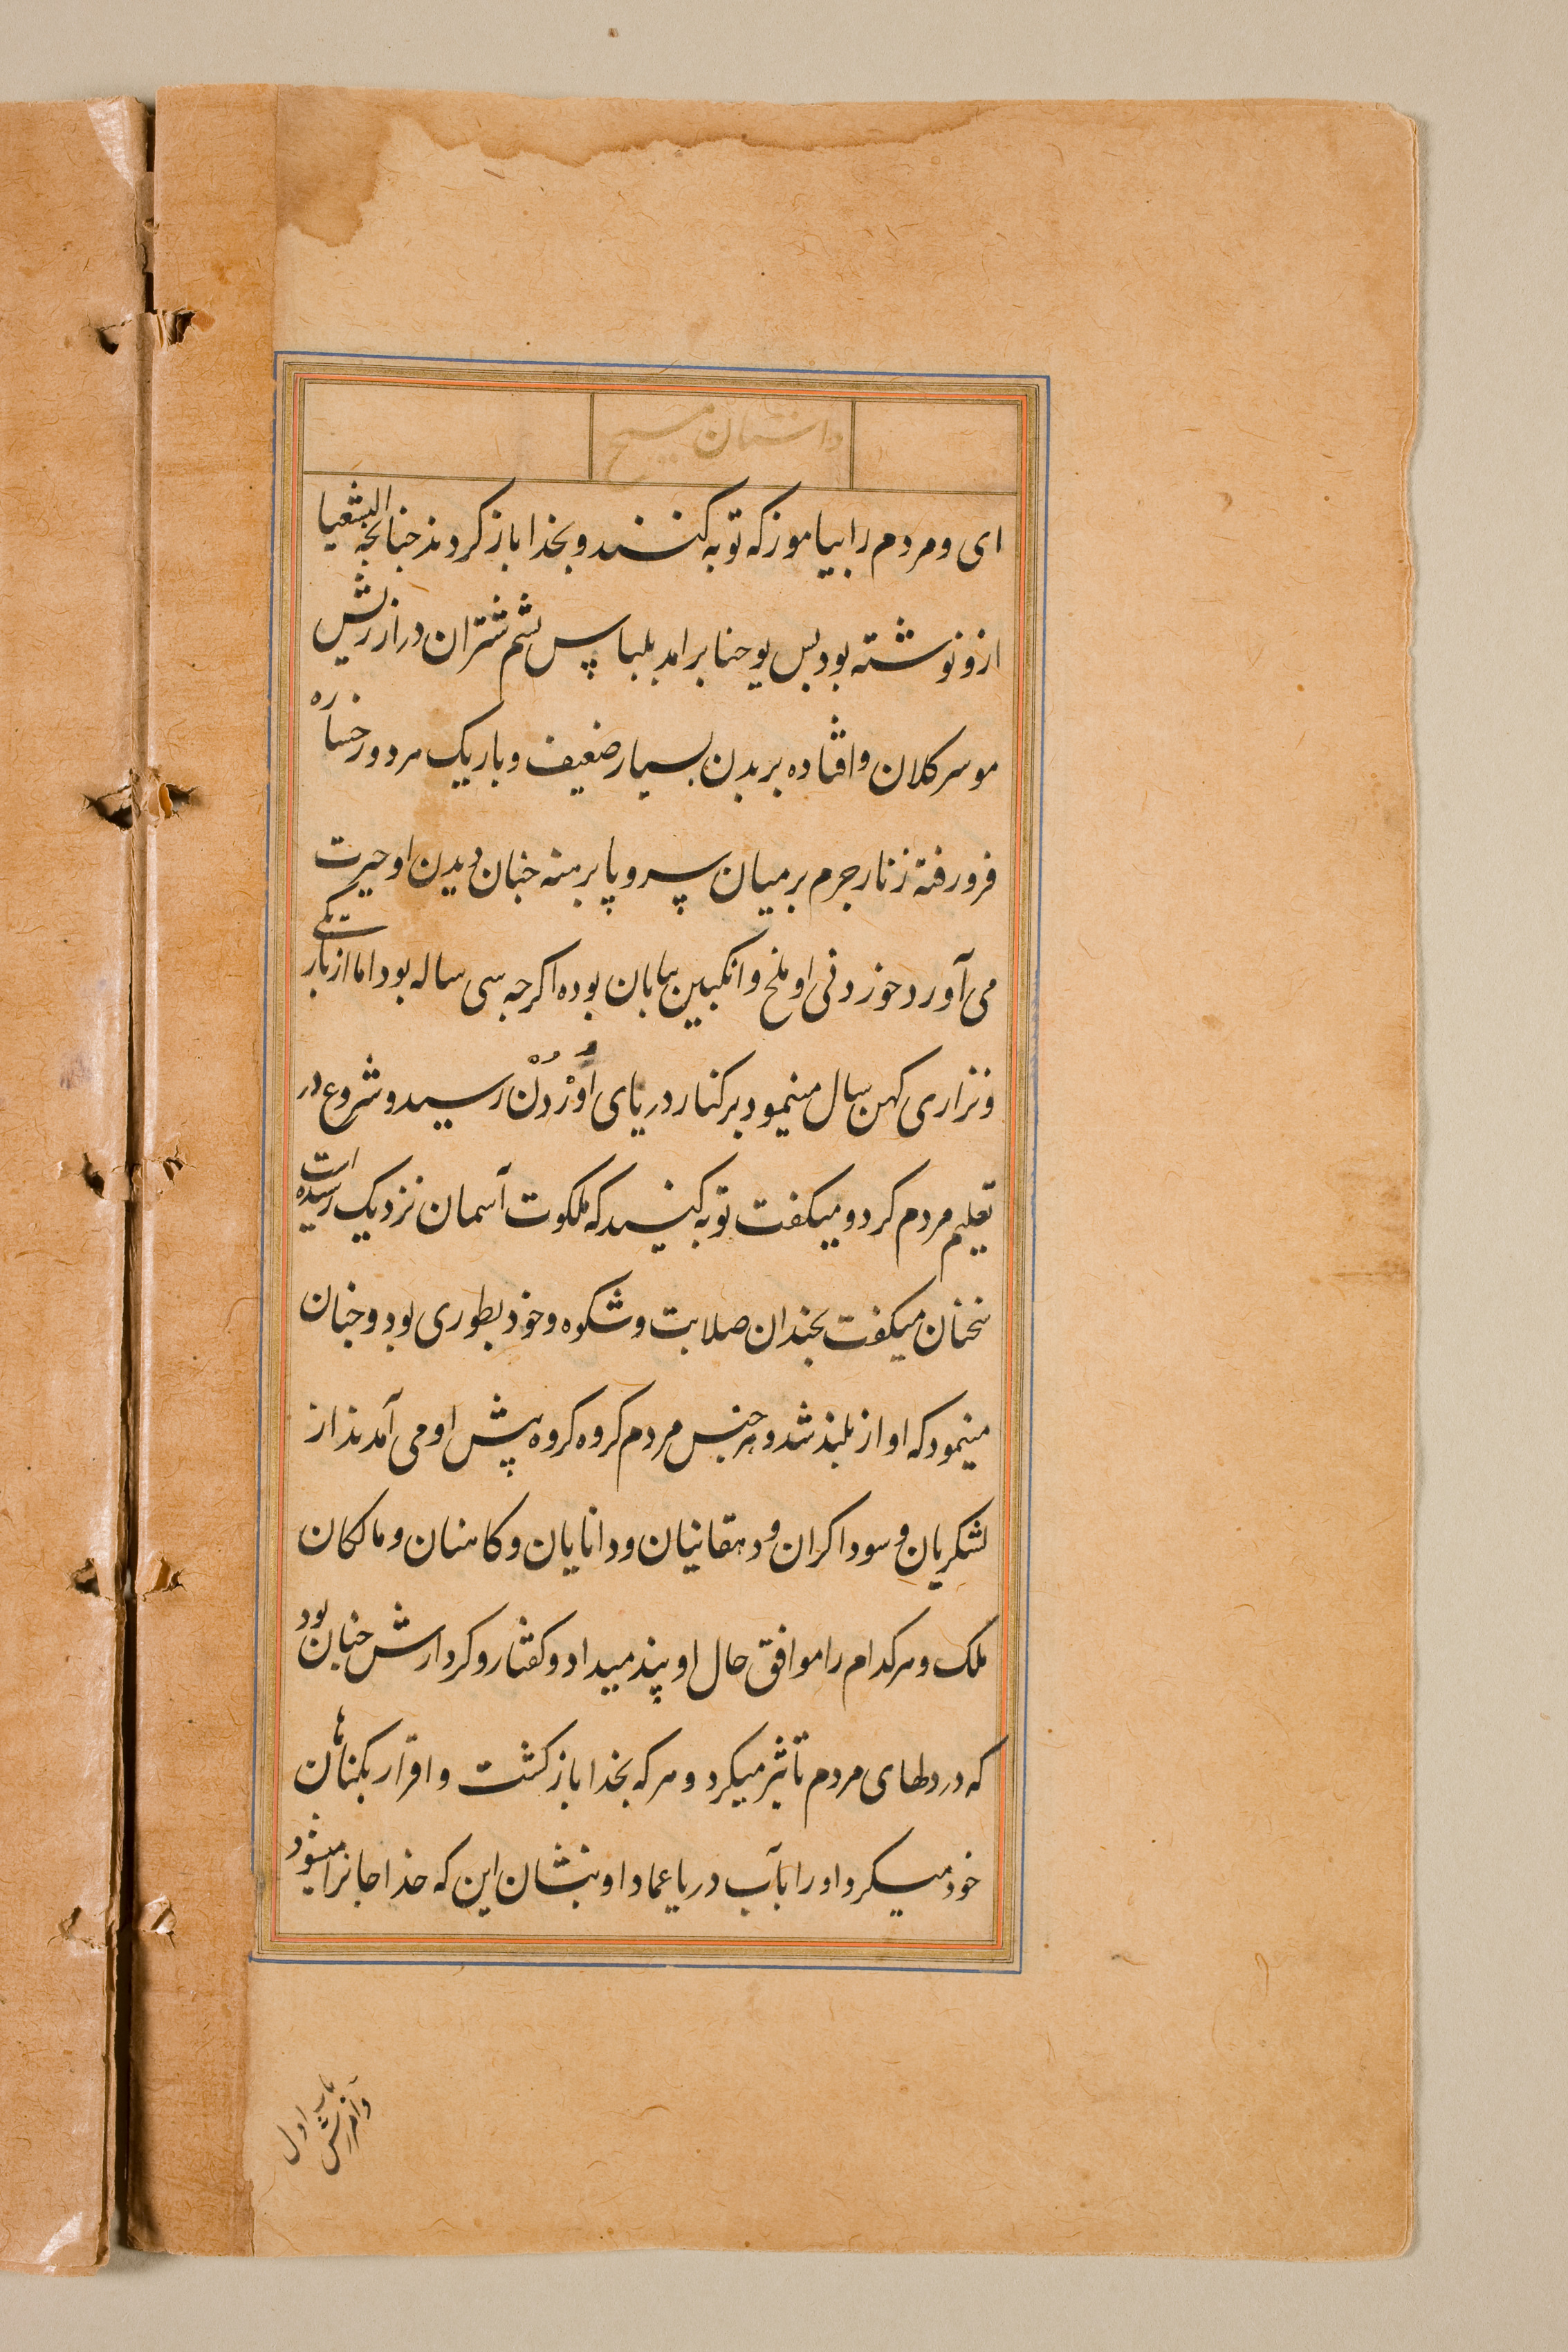 داستان مسیح
ای و مردم را بیاموز که توبه کنند و بخدا باز کردند جنانجه الیشعیا
ازو نوشته بود پس یوحنا برامد بلباس پشم شتران دراز ریش
مو سر کلان و افتاده بر بدن بسیار ضعیف و باریک مرد و رخساره
فرو رفته زنار جرم بر میان سر و پا برهنه جنان دیدن او حیرت
می آورد خوردنی او ملخ و انکبین بیابان بوده اکرجه سی ساله بود اما از باریکی
و نزاری کهن سال مینمود بر کنار دریای اُورْدُنْ رسید و شروع در
تعلیم مردم کرد و میکفت توبه کنید که ملکوت آسمان نزدیک رسیده است
سخنان میکفت بجندان صلابت و شکوه و خود بطوری بود و جنان
مینمود که اواز بلند شد و هر جنس مردم کروه کروه پیش او می آمدند از
لشکریان و سوداکران و دهقانیان و دانایان و کاهنان و مالکان
ملک و هر کدام را موافق حال او پند میداد و کفتار و کردارش جنان بود
که در دلهای مردم تاثیر میکرد و هر که بخدا باز کشت و اقرار بکناهان
خود میکرد او را بآب دریا عماد او بنشان این که خدا جانرا میشود
باب اول
و آمرزش